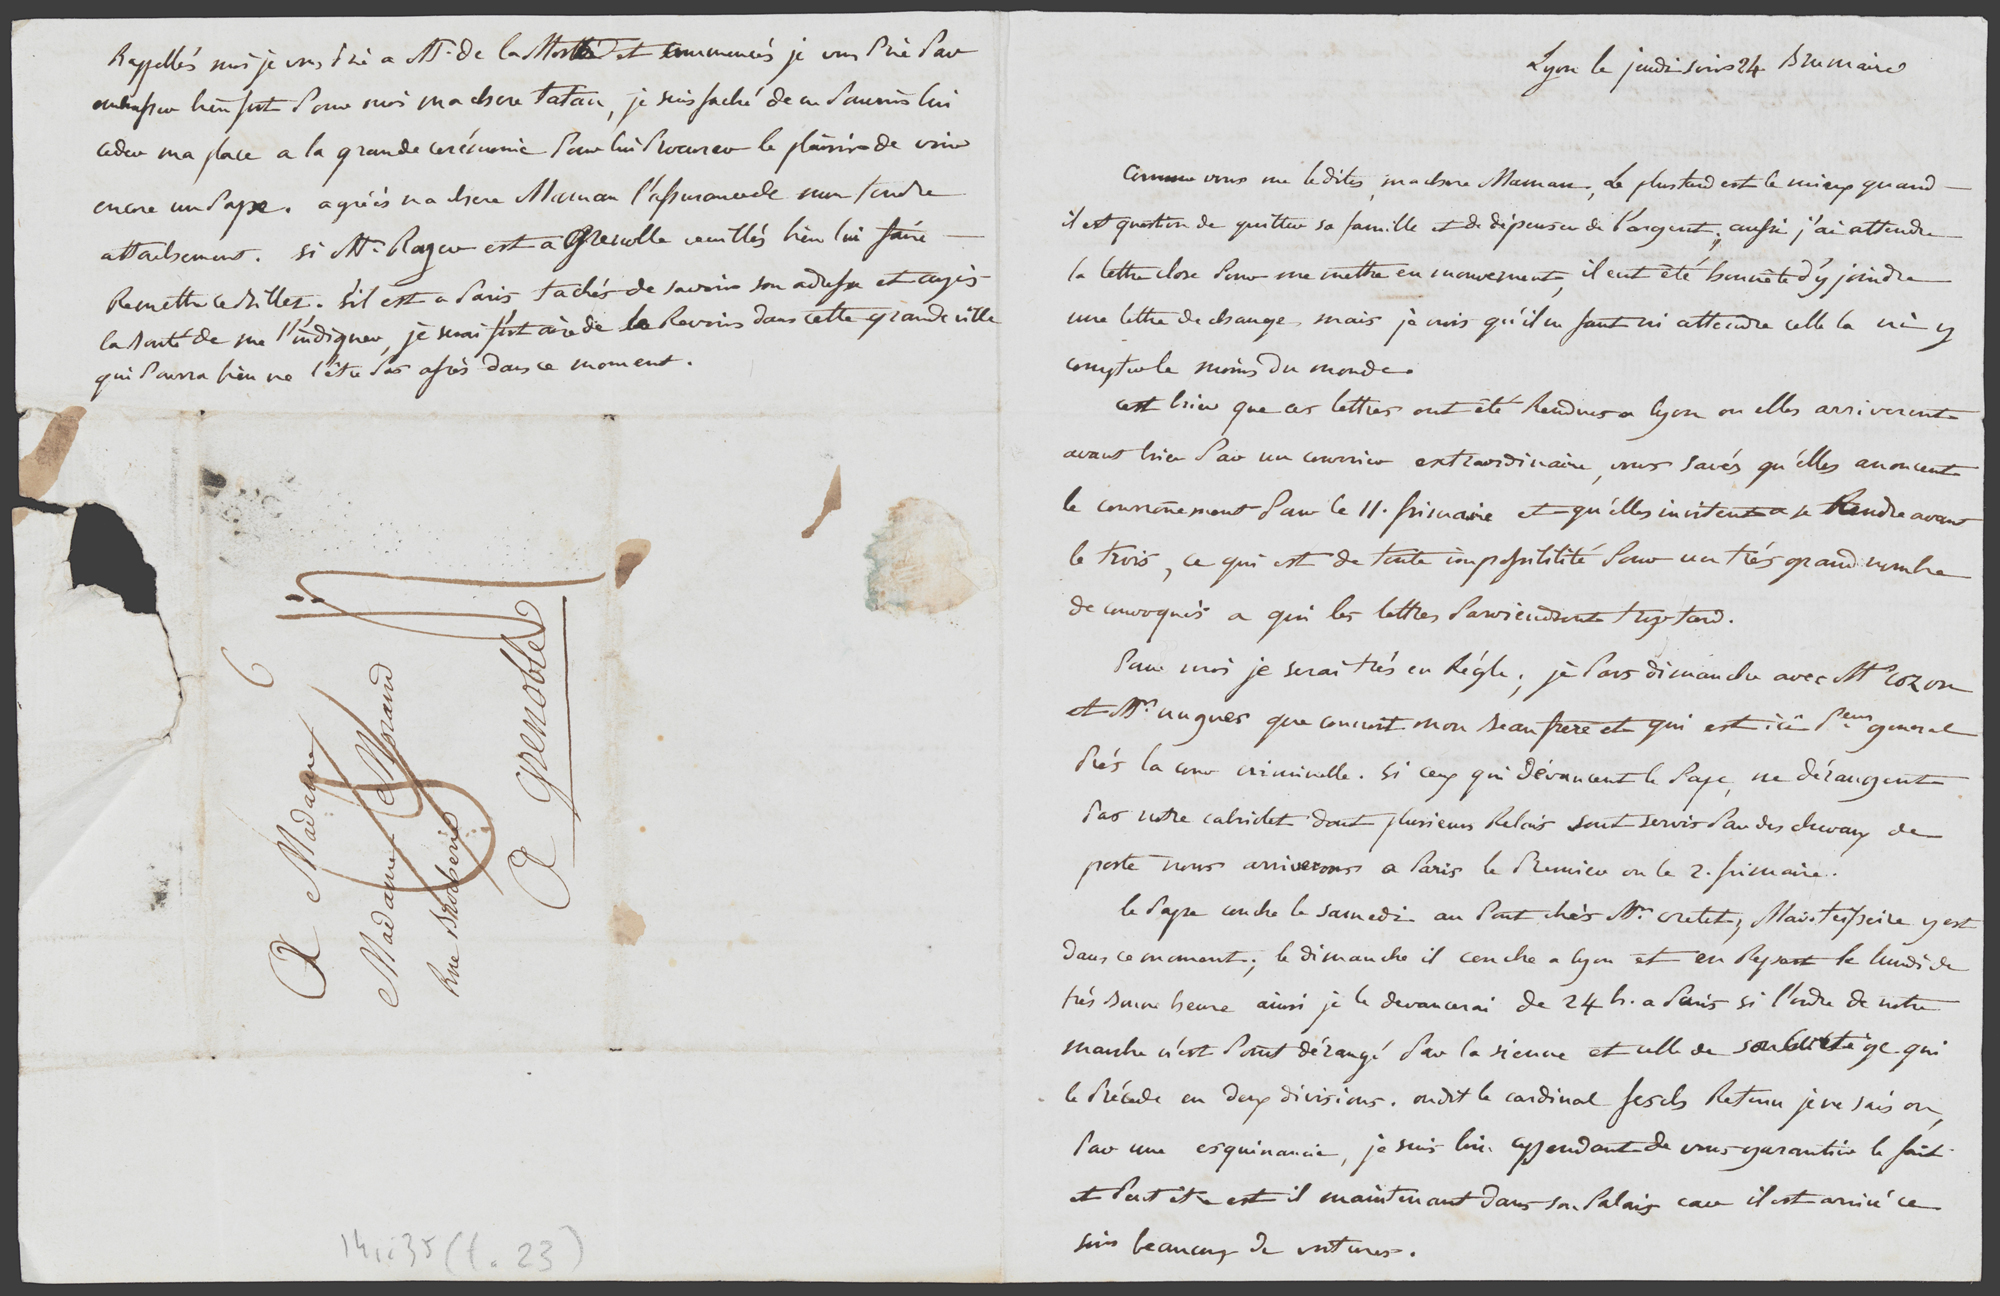 Lyon le jeudi soir 24 Brumaire
Comme vous me le dites, ma chere Maman, le plus tard est le mieux quand
il est question de quitter sa famille et de dépenser de l'argent; aussi j'ai attendu
la lettre close pour me mettre en mouvement, il eut été honnête d'y joindre
une lettre de change, mais je crois qu'il ne faut ni attendre celle la ni y
compter le moins du monde.
c'est hier que ces lettres ont été Rendues a lyon ou elles arriverent
avant hier par un courrier extraordinaire, vous savés qu'elles anoncent
le couronnement pour le 11. frimaire et qu'elles invitent a se Rendre avant
le trois, ce qui est de toute impossibilité pour un très grand nombre
de convoqués a qui les lettres parviendront trop tard.
Pour moi je serai très en Régle; je pars dimanche avec Mr. cozon
et Mr. nugues que connoit mon Beaufrere et qui est ici Peur general
Prés la cour criminelle. si ceux qui dévancent le Pape, ne dérangent
pas notre cabriolet dont plusieurs Relais sont servis par des chevaux de
poste nous arriverons a Paris le Premier ou le 2. frimaire.
le Pape couche le samedi au Pont chés Mr. cretet, Mais. teisseire y est
dans ce moment; le dimanche il couche a lyon et en Repart le lundi de
très Bonne heure ainsi je le devancerai de 24 h. a Paris si l'ordre de notre
marche n'est point dérangé par la sienne et celle de son cortège qui
le Précede en deux divisions. on dit le cardinal fesch Retenu je ne sais ou,
par une esquinancie, je suis loin cependant de vous garantir le fait
et Peut être est il maintenant dans son Palais car il est arrivé ce
soir beaucoup de voitures.
Rappellés moi je vous Prie a Mr. de la Motte et commencés je vous Prie par
embrasser bien fort Pour moi ma chere tatan, je suis faché de ne Pouvoir lui
ceder ma place a la grande cerémonie Pour lui Procurer le plaisir de voir
encore un Pape. agréés ma chere Maman l'assurance de mon tendre
attachement. si Mr. Roger est a Grenoble veuillés bien lui faire
Remettre ce Billet. s'il est a Paris tachés de savoir son adresse et ayés
la Bonté de me l'indiquer, je serai fort aise de le Revoir dans cette grande ville
qui Pourra bien ne l'être Pas assés dans ce moment.
6
A Madame
Madame Morand
Rue Brocherie
A Grenoble